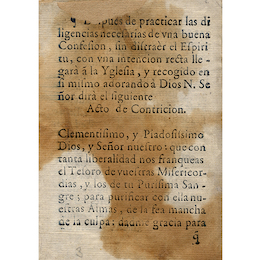 ¶ Después de practicar las di
ligencias necesarias de vna buena
Confesion, sin distraer el Espiri
tu, con vna intencion recta lle
gará à la Yglesia, y recogido en
si mismo adorando à Dios N. Se
ñor dirà el siguiente
Acto de Contricion.
Clementisimo, y Piadosisimo
Dios, y Señor nuestro: que con
tanta liberalidad nos franqueas
el Tesoro de vuestras Misericor-
dias, y los de tu Purisima San-
gre; para purificar con ella nu-
estras Almas, de la fea mancha
de la culpa; dadme gracia para
q̃